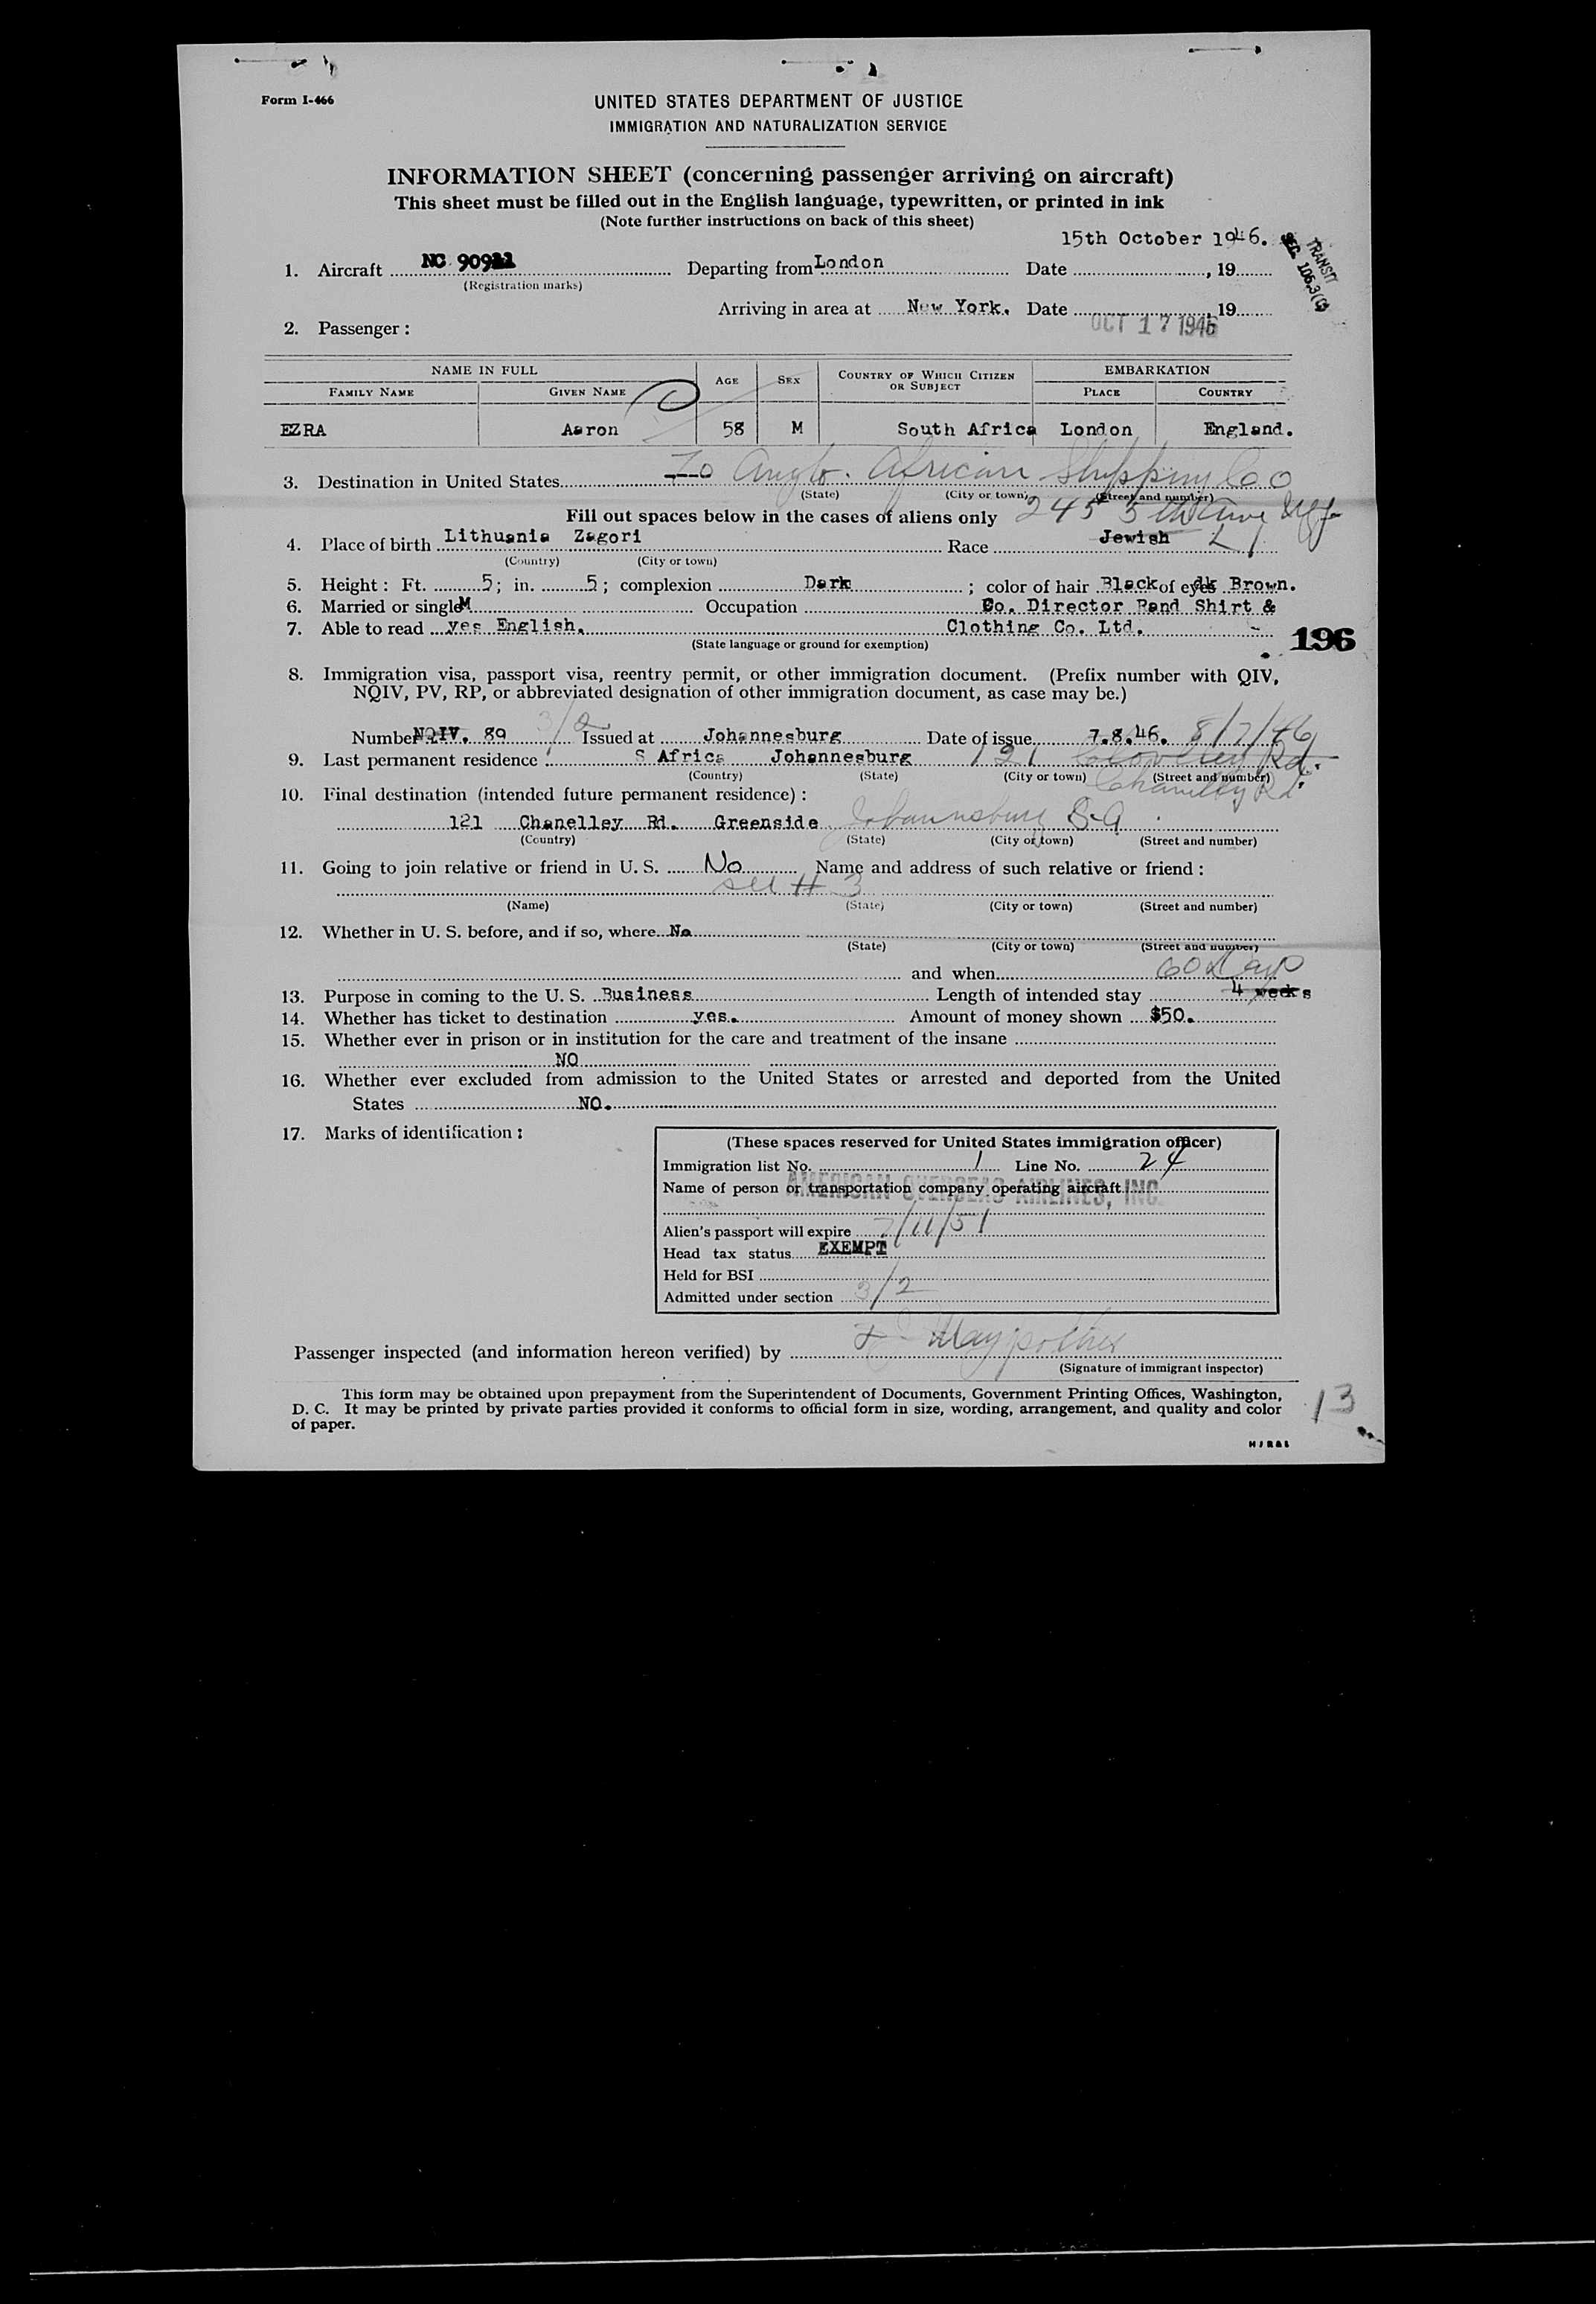 Form I-466
UNITED STATES DEPARTMENT OF JUSTICE
IMMIGRATION AND NATURALIZATION SERVICE
INFORMATION SHEET (concerning passenger arriving on aircraft)
This sheet must be filled out in the English language, typewritten, or printed in ink
(Note further instructions on back of this sheet)
15th October 1946.
TRANSIT
SEC. 106.3(C)
1. Aircraft NC 90921 Departing from London Date , 19
(Registration marks)
Arriving in area at New York. Date , 19
OCT 17 1946
2. Passenger :
NAME IN FULL AGE SEX COUNTRY OF WHICH CITIZEN OR SUBJECT EMBARKATION
FAMILY NAME GIVEN NAME PLACE COUNTRY
EZRA Aaron 58 M South Africa London England.
3. Destination in United States To Anglo. African Shipping Co
(State) (City or town) (Street and number)
245 5th Ave
Fill out spaces below in the cases of aliens only
4. Place of birth Lithuania Zagori Race Jewish
(Country) (City or town)
5. Height : Ft. 5; in. 5; complexion Dark ; color of hair Black of eyes dk Brown.
6. Married or single M Occupation Co. Director Rand Shirt &
7. Able to read yes English. Clothing Co. Ltd.
(State language or ground for exemption)
196
8. Immigration visa, passport visa, reentry permit, or other immigration document. (Prefix number with QIV,
NQIV, PV, RP, or abbreviated designation of other immigration document, as case may be.)
Number NQIV. 89 3/2 Issued at Johannesburg Date of issue 7.8.46. 8/7/46
9. Last permanent residence : S Africa Johannesburg 121 Rd.
(Country) (State) (City or town) (Street and number)
Chanelley Rd.
10. Final destination (intended future permanent residence) :
121 Chanelley Rd. Greenside Johannesburg S-A
(Country) (State) (City or town) (Street and number)
11. Going to join relative or friend in U. S. No Name and address of such relative or friend :
see # 3
(Name) (State) (City or town) (Street and number)
12. Whether in U. S. before, and if so, where No
(State) (City or town) (Street and number)
and when 60 days
13. Purpose in coming to the U. S. Business Length of intended stay 4 weeks
14. Whether has ticket to destination yes. Amount of money shown $50.
15. Whether ever in prison or in institution for the care and treatment of the insane
NO
16. Whether ever excluded from admission to the United States or arrested and deported from the United
States NO.
17. Marks of identification :
(These spaces reserved for United States immigration officer)
Immigration list No. 1 Line No. 24
Name of person or transportation company operating aircraft
AMERICAN OVERSEAS AIRLINES, INC.
Alien's passport will expire 7/11/51
Head tax status EXEMPT
Held for BSI
Admitted under section 3/2
Passenger inspected (and information hereon verified) by
(Signature of immigrant inspector)
This form may be obtained upon prepayment from the Superintendent of Documents, Government Printing Offices, Washington,
D. C. It may be printed by private parties provided it conforms to official form in size, wording, arrangement, and quality and color
of paper.
13